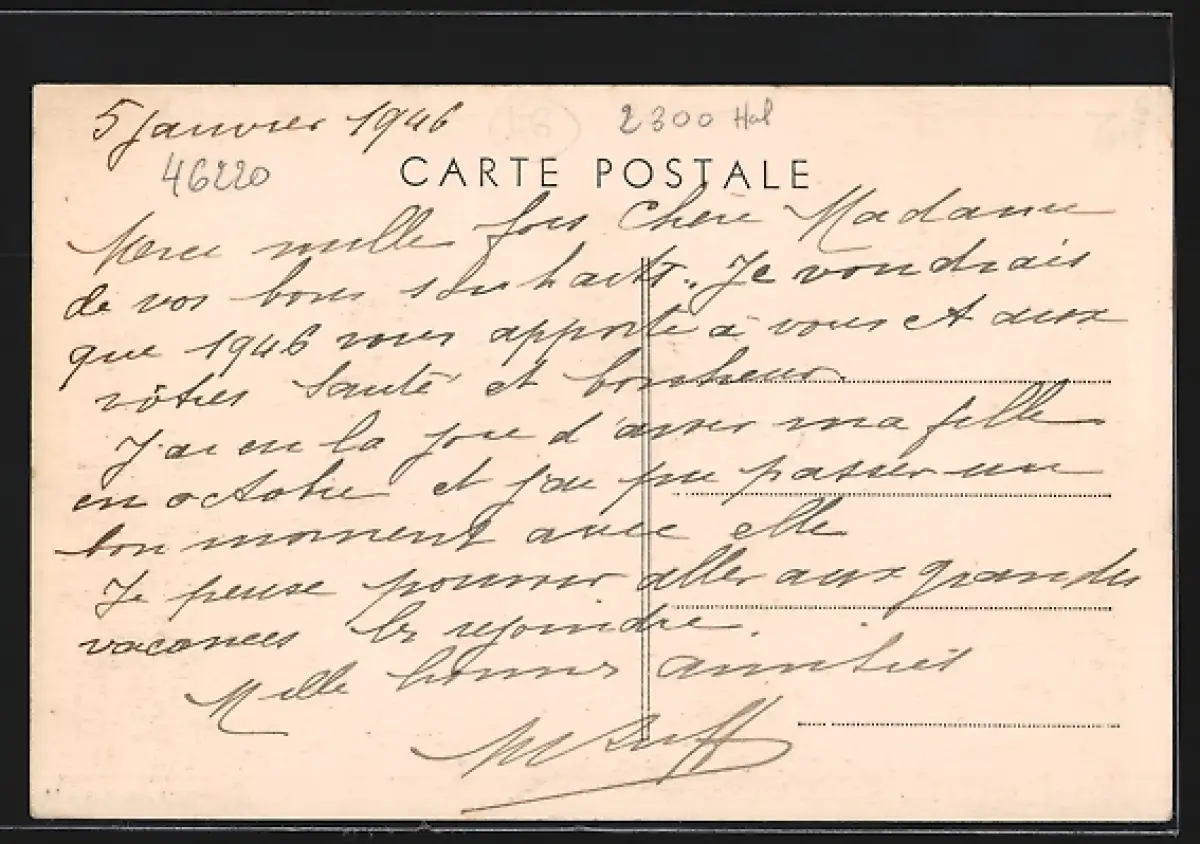 5 Janvier 1946
2300 Hal
46220
CARTE POSTALE
Merci mille fois Chère Madame
de vos bons souhaits. Je voudrais
que 1946 vous apporte à vous et aux
vôtres santé et bonheur.
J'ai eu la joie d'avoir ma fille
en octobre et j'ai pu passer un
bon moment avec elle
Je pense pouvoir aller aux grandes
vacances les rejoindre.
Mille bonnes amitiés